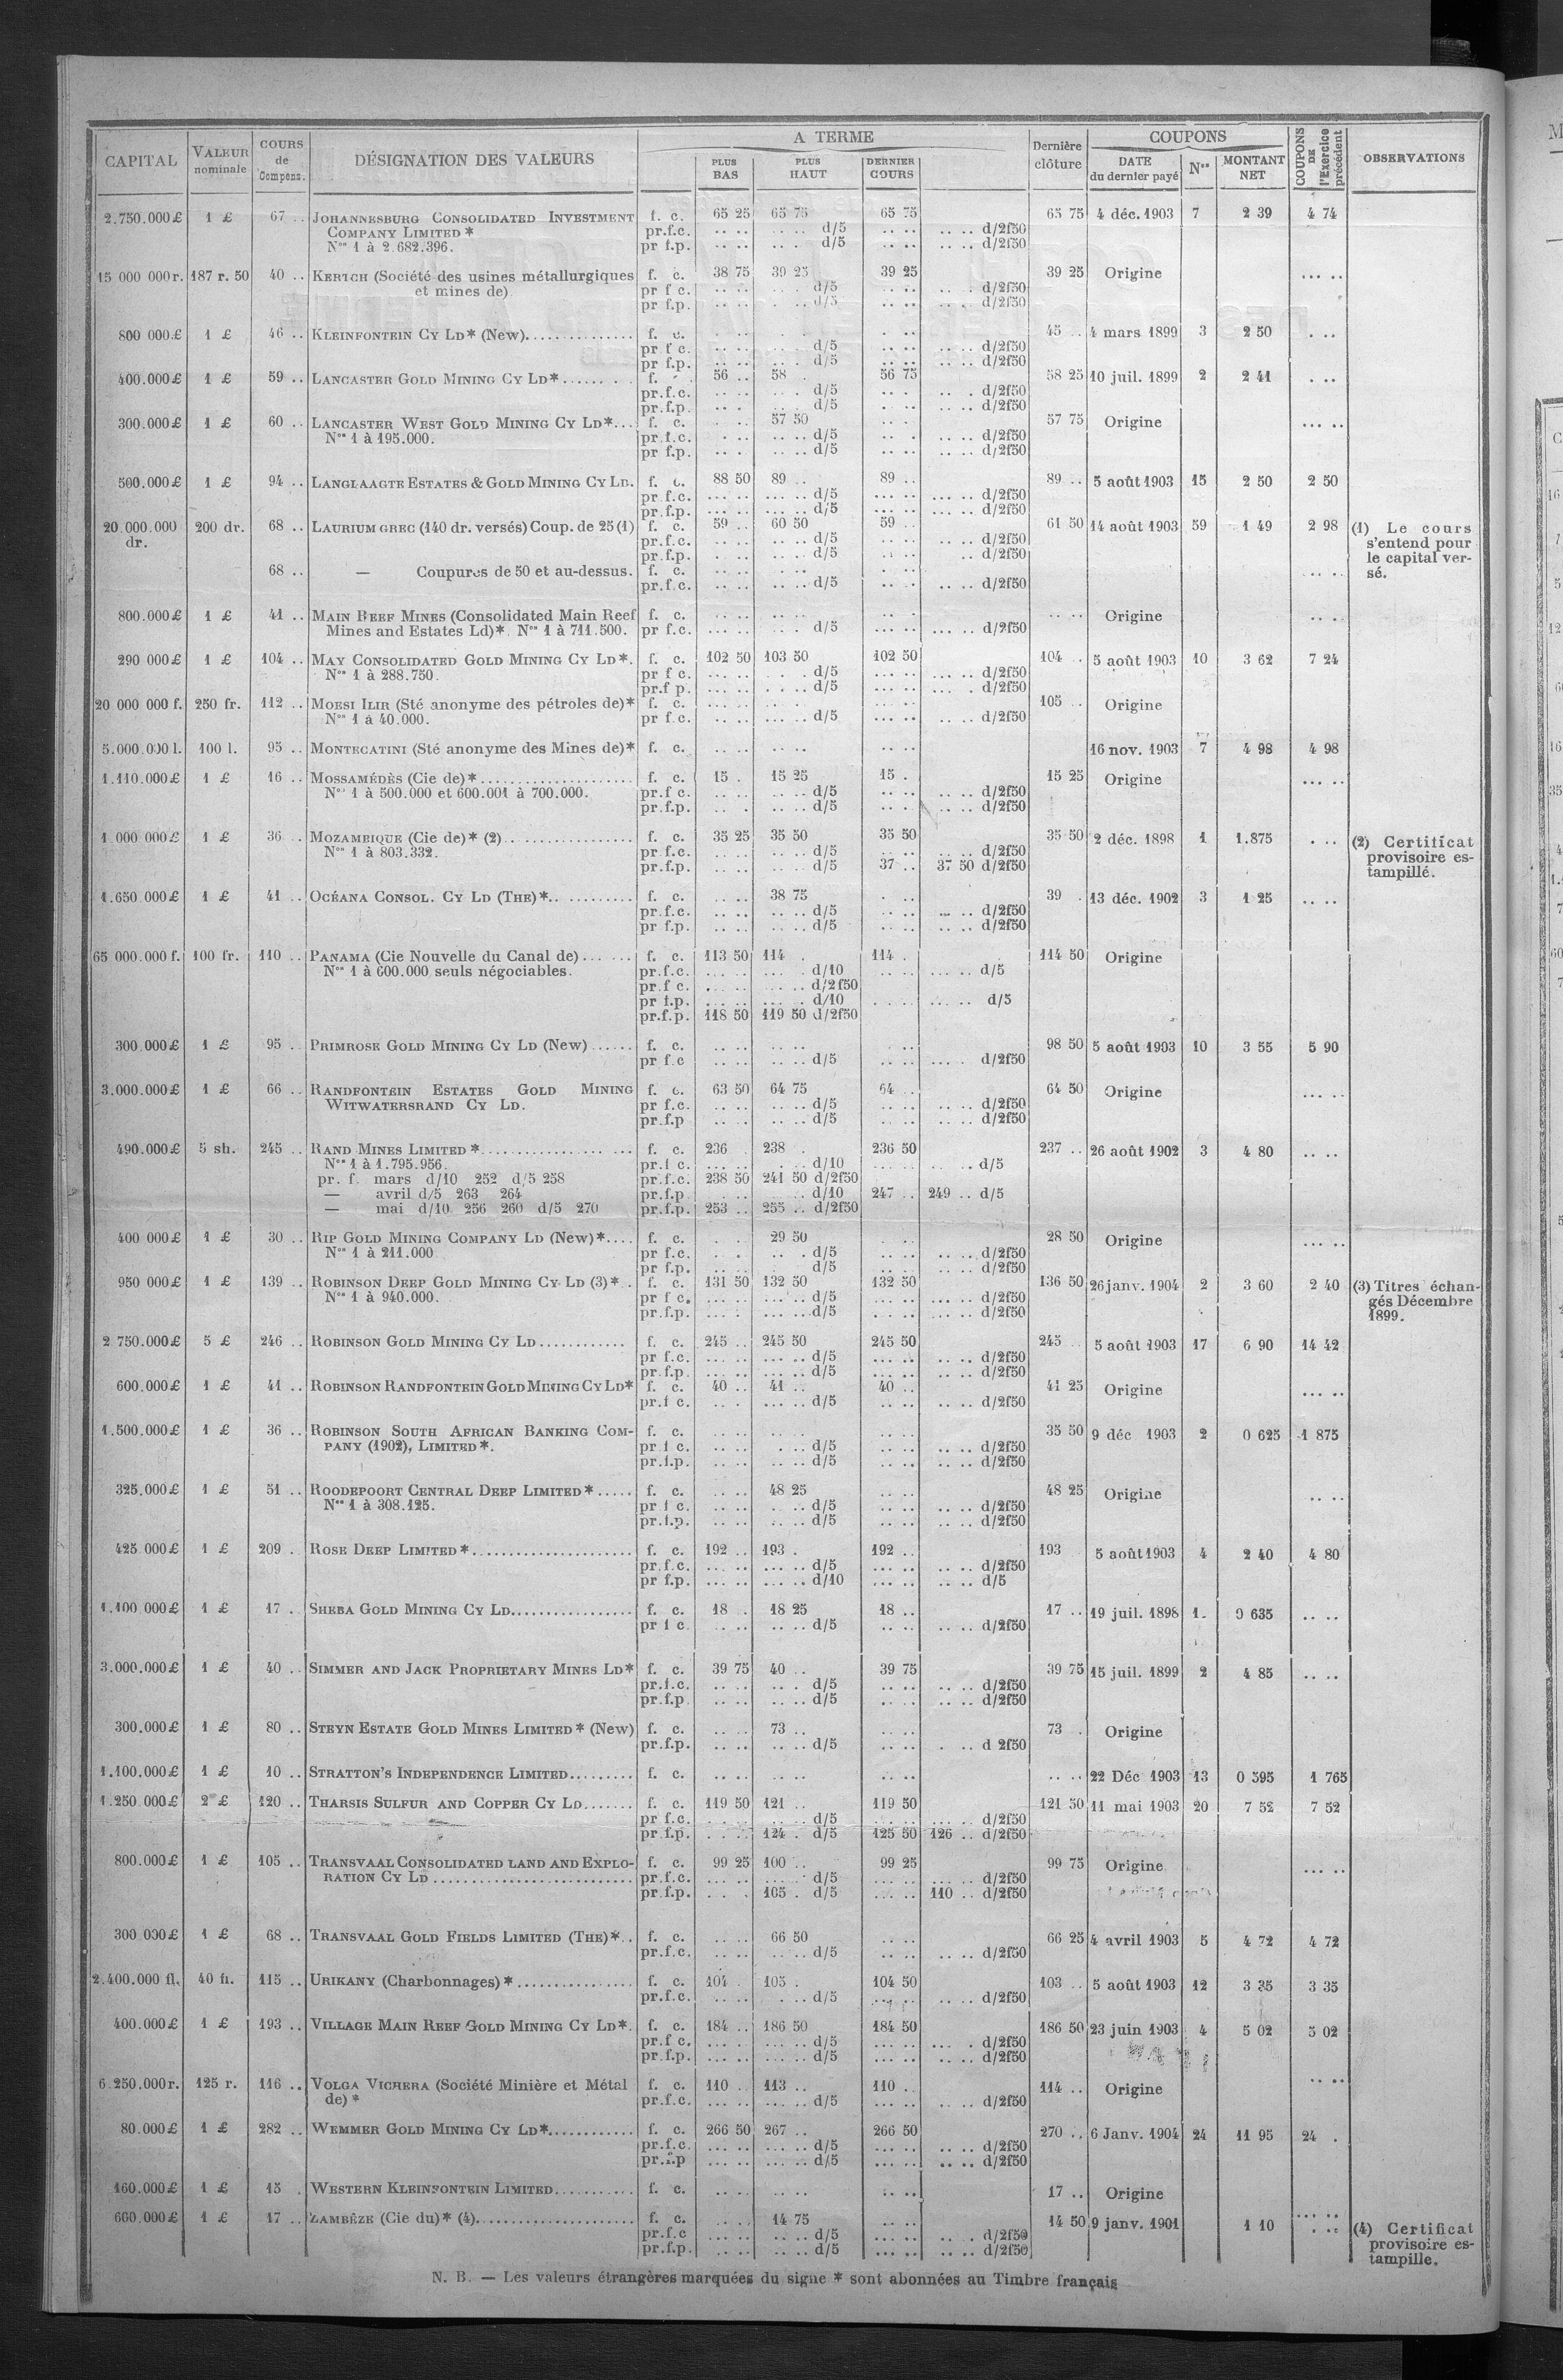 CAPITAL VALEUR nominale COURS de Compens. DÉSIGNATION DES VALEURS A TERME PLUS BAS PLUS HAUT DERNIER COURS Dernière clôture COUPONS DATE du dernier payé Nos MONTANT NET COUPONS DE l'Exercice précédent OBSERVATIONS
2.750.000 £ 1 £ 67 .. JOHANNESBURG CONSOLIDATED INVESTMENT f. c. 65 25 65 75 65 75 65 75 4 déc. 1903 7 2 39 4 74
COMPANY LIMITED * pr.f.c. .. .. .. .. d/5 .. .. .. .. d/2f50
Nos 1 à 2.682.396. pr f.p. .. .. .. .. d/5 .. .. .. .. d/2f50
15 000 000 r. 187 r. 50 40 .. KERTCH (Société des usines métallurgiques f. c. 38 75 39 25 39 25 39 25 Origine .... ..
et mines de) pr f c. .. .. .. .. d/5 .. .. .. .. d/2f50
pr f.p. .. .. .. .. d/5 .. .. .. .. d/2f50
800 000 £ 1 £ 46 .. KLEINFONTEIN CY LD* (New)............... f. c. 45 .. 4 mars 1899 3 2 50 . ..
pr f c. .. .. .. .. d/5 .. .. .. .. d/2f50
pr f.p. .. .. .. .. d/5 .. .. .. .. d/2f50
400.000 £ 1 £ 59 .. LANCASTER GOLD MINING CY LD*....... f. 56 .. 58 . 56 75 58 25 10 juil. 1899 2 2 41 . ..
pr.f.c. .. .. .. . d/5 .. . .. . d/2f50
pr.f.p. .. . .. . d/5 . .. .. .. d/2f50
300.000 £ 1 £ 60 .. LANCASTER WEST GOLD MINING CY LD*... f. c. 57 50 57 75 Origine .... ..
Nos 1 à 195.000. pr.f.c. . .. .. .. d/5 .. . .. .. d/2f50
pr f.p. .. . .. .. d/5 .. . .. .. d/2f50
500.000 £ 1 £ 94 .. LANGLAAGTE ESTATES & GOLD MINING CY LD. f. c. 88 50 89 .. 89 .. 89 .. 5 août 1903 15 2 50 2 50
pr f.c. .... .. .... .. d/5 .... .. .... .. d/2f50
pr.f.p. .... .. .... .. d/5 .... .. .... .. d/2f50
20.000.000 200 dr. 68 .. LAURIUM GREC (140 dr. versés) Coup. de 25 (1) f. c. 59 .. 60 50 59 .. 61 50 14 août 1903 59 1 49 2 98 (1) Le cours
dr. pr.f.c. .. .. .. .. d/5 .. .. .. .. d/2f50 s'entend pour
pr.f.p. .. .. .. .. d/5 .. .. .. d/2f50 le capital ver-
68 .. — Coupures de 50 et au-dessus. f. c. .. .. .. .. .. .. .... .. sé.
pr.f.c. .. .. .. .. d/5 .. .. .. .. d/2f50
800.000 £ 1 £ 41 .. MAIN REEF MINES (Consolidated Main Reef f. c. .. .. .. .. .. .. .. .. Origine .. ..
Mines and Estates Ld)* Nos 1 à 711.500. pr f.c. .... .. .. .. d/5 .... .. .... .. d/2f50
290 000 £ 1 £ 104 .. MAY CONSOLIDATED GOLD MINING CY LD*. f. c. 102 50 103 50 102 50 104 .. 5 août 1903 10 3 62 7 24
Nos 1 à 288.750. pr f c. .... .. . . . d/5 .... .. .... .. d/2f50
pr.f p. .... .. . . .. d/5 .... .. .... . d/2f50
20 000 000 f. 250 fr. 112 .. MORSI ILIR (Sté anonyme des pétroles de)* f. c. .... .. .. .. .... .. 105 .. Origine
Nos 1 à 40.000. pr f.c. .. .. .. .. d/5 .... .. .. .. d/2f50
5.000.000 l. 100 l. 95 .. MONTECATINI (Sté anonyme des Mines de)* f. c. .. .. .. .. .. .. 16 nov. 1903 7 4 98 4 98
1.110.000 £ 1 £ 16 .. MOSSAMÉDÈS (Cie de)*.................... f. c. 15 . 15 25 15 . 15 25 Origine .... ..
Nos 1 à 500.000 et 600.001 à 700.000. pr.f c. .. .. .. .. d/5 .. .. .. .. d/2f50
pr.f.p. .. . .. .. d/5 .. . .. .. d/2f50
1 000 000 £ 1 £ 36 .. MOZAMBIQUE (Cie de)* (2)................. f. c. 35 25 35 50 35 50 35 50 2 déc. 1898 1 1.875 . .. (2) Certificat
Nos 1 à 803.332. pr f.c. .. .. .. .. d/5 .. .. .. .. d/2f50 provisoire es-
pr.f.p. .. .. .. .. d/5 37 .. 37 50 d/2f50 tampillé.
1.650 000 £ 1 £ 41 .. OCÉANA CONSOL. CY LD (THE)*........... f. c. .. .. 38 75 . .. 39 . 13 déc. 1902 3 1 25 .. ..
pr.f.c. .. .. .. .. d/5 .. .. .. .. d/2f50
pr f.p. .. .. .. .. d/5 .. .. .. .. d/2f50
65 000.000 f. 100 fr. 110 .. PANAMA (Cie Nouvelle du Canal de)...... f. c. 113 50 114 . 114 . 114 50 Origine
Nos 1 à 600.000 seuls négociables. pr.f.c. .... .. .... . d/10 .. .. .... .. d/5
pr.f c. . .. .. .... .. d/2f50
pr f.p. .... .. .... . d/10 . .. .. .... .. d/5
pr.f.p. 118 50 119 50 d/2f50
300.000 £ 1 £ 95 .. PRIMROSE GOLD MINING CY LD (New)...... f. c. .. .. .. .. . .. 98 50 5 août 1903 10 3 55 5 90
pr f.c .. .. .. .. d/5 .. .. .... . d/2f50
3.000.000 £ 1 £ 66 .. RANDFONTEIN ESTATES GOLD MINING f. c. 63 50 64 75 64 .. 64 50 Origine .... ..
WITWATERSRAND CY LD. pr f.c. .. .. .. .. d/5 .. .. .. .. d/2f50
pr.f.p .. .. .. .. d/5 .. .. .. .. d/2f50
490.000 £ 5 sh. 245 .. RAND MINES LIMITED *.................... f. c. 236 . 238 . 236 50 237 .. 26 août 1902 3 4 80 .. ..
Nos 1 à 1.795.956. pr.f c. .... .. . .. d/10 .... .. .. .. d/5
pr. f. mars d/10 252 d/5 258 pr.f.c. 238 50 241 50 d/2f50
— avril d/5 263 264 pr.f.p .. .. .. .. d/10 247 .. 249 .. d/5
— mai d/10 256 260 d/5 270 pr.f.p. 253 .. 255 .. d/2f50
400 000 £ 1 £ 30 .. RIP GOLD MINING COMPANY LD (New)*.... f. c. . . 29 50 . .. 28 50 Origine .... ..
Nos 1 à 211.000 pr f.c. .. . .. . d/5 .. .. .. .. d/2f50
pr f.p. .. . d/5 .. .. .. .. d/2f50
950 000 £ 1 £ 139 .. ROBINSON DEEP GOLD MINING CY LD (3)* . f. c. 131 50 132 50 132 50 136 50 26 janv. 1904 2 3 60 2 40 (3) Titres échan-
Nos 1 à 940.000. pr f c. .... .. .... .. d/5 .... .. .... .. d/2f50 gés Décembre
pr.f.p. .... .. .... .. d/5 .... .. .... .. d/2f50 1899.
2 750.000 £ 5 £ 246 .. ROBINSON GOLD MINING CY LD............ f. c. 245 .. 245 50 245 50 245 .. 5 août 1903 17 6 90 14 42
pr f.c. .... .. .... .. d/5 .... .. .. .. d/2f50
pr.f.p. .... .. .... .. d/5 .... .. .. .. d/2f50
600.000 £ 1 £ 41 .. ROBINSON RANDFONTEIN GOLD MINING CY LD* f. c. 40 .. 41 .. 40 .. 41 25 Origine .... ..
pr.f c. .. . .. .. d/5 .. . .. .. d/2f50
1.500.000 £ 1 £ 36 .. ROBINSON SOUTH AFRICAN BANKING COM- f. c. .. .. .. .. .. .. 35 50 9 déc 1903 2 0 625 1 875
PANY (1902), LIMITED*. pr f c. .. .. . .. d/5 .. .. .. .. d/2f50
pr.f.p. .. .. .. .. d/5 .. .. .. .. d/2f50
325.000 £ 1 £ 51 .. ROODEPOORT CENTRAL DEEP LIMITED*..... f. c. .. .. 48 25 .. .. 48 25 Origine .. ..
Nos 1 à 308.125. pr f c. .. .. . .. d/5 .. .. .. .. d/2f50
pr.f.p. .. .. .. .. d/5 .. .. .. .. d/2f50
425 000 £ 1 £ 209 . ROSE DEEP LIMITED*..................... f. c. 192 .. 193 . 192 .. 193 5 août 1903 4 2 40 4 80
pr.f.c. .... .. .... .. d/5 .... .. .. .. d/2f50
pr f.p. .... .. .... .. d/10 .... .. .. .. d/5
1.100 000 £ 1 £ 17 .. SHEBA GOLD MINING CY LD................ f. c. 18 . 18 25 18 .. 17 .. 19 juil. 1898 1. 0 635 .. ..
pr f c .. .. .. .. d/5 .. .. .. .. d/2f50
3.000.000 £ 1 £ 40 .. SIMMER AND JACK PROPRIETARY MINES LD* f. c. 39 75 40 .. 39 75 39 75 15 juil. 1899 2 4 85 .. ..
pr.f.c. .. .. .. . d/5 .. .. .. .. d/2f50
pr.f.p .. .. .. .. d/5 .. .. .. .. d/2f50
300.000 £ 1 £ 80 .. STEYN ESTATE GOLD MINES LIMITED* (New) f. c. .. .. 73 .. .. .. 73 . Origine
pr.f.p. .. .. .. .. d/5 .. .. . .. d 2f50
1.100.000 £ 1 £ 10 .. STRATTON'S INDEPENDENCE LIMITED......... f. c. .. .. .. .. .. .. .. .. 22 Déc 1903 13 0 595 1 765
1.250.000 £ 2 £ 120 .. THARSIS SULFUR AND COPPER CY LD....... f. c. 119 50 121 .. 119 50 121 50 11 mai 1903 20 7 52 7 52
pr f.c. . .. .. .. .. d/5 .. .. .... .. d/2f50
pr f.p. . . .. 124 . d/5 125 50 126 .. d/2f50
800.000 £ 1 £ 105 .. TRANSVAAL CONSOLIDATED LAND AND EXPLO- f. c. 99 25 100 .. 99 25 99 75 Origine .... ..
RATION CY LD .......................... pr.f.c. .. .. .... . d/5 .... .. .... .. d/2f50
pr.f.p. . . . 105 . d/5 .... .. 110 .. d/2f50
300 000 £ 1 £ 68 .. TRANSVAAL GOLD FIELDS LIMITED (THE)*.. f. c. .. .. 66 50 .. .. 66 25 4 avril 1903 5 4 72 4 72
pr.f.c. .. .. .. .. d/5 .. .. .. .. d/2f50
2.400.000 fl. 40 fl. 115 .. URIKANY (Charbonnages)*................ f. c. 104 . 105 . 104 50 103 .. 5 août 1903 12 3 35 3 35
pr.f.c. .. .. . .. d/5 .... .. .. .. d/2f50
400.000 £ 1 £ 193 .. VILLAGE MAIN REEF GOLD MINING CY LD*. f. c. 184 .. 186 50 184 50 186 50 23 juin 1903 4 5 02 5 02
pr.f c. .... .. .... .. d/5 .... .. .... . d/2f50
pr.f.p. .... .. .... .. d/5 .... .. .. .. d/2f50
6.250.000 r. 125 r. 116 .. VOLGA VICHERA (Société Minière et Métal f. c. 110 .. 113 .. 110 .. 114 .. Origine .. ..
de)* pr.f.c. .... .. .... .. d/5 .... .. .. .. d/2f50
80.000 £ 1 £ 282 .. WEMMER GOLD MINING CY LD*............ f. c. 266 50 267 .. 266 50 270 .. 6 Janv. 1904 24 11 95 24 .
pr.f.c. .... .. .... .. d/5 .... .. .. .. d/2f50
pr.f.p .... .. .... .. d/5 .... .. .. .. d/2f50
160.000 £ 1 £ 15 . WESTERN KLEINFONTEIN LIMITED........... f. c. .. .. .. .. .. .. 17 .. Origine
600.000 £ 1 £ 17 .. ZAMBÈZE (Cie du)* (4)..................... f. c. 14 75 .. .. 14 50 9 janv. 1901 1 10 . .. (4) Certificat
pr.f.c .... .. .. .. d/5 .... .. .. . d/2f50 provisoire es-
pr.f.p. .. .. .. .. d/5 .. .. .. .. d/2f50 tampille.
N. B. — Les valeurs étrangères marquées du signe * sont abonnées au Timbre français